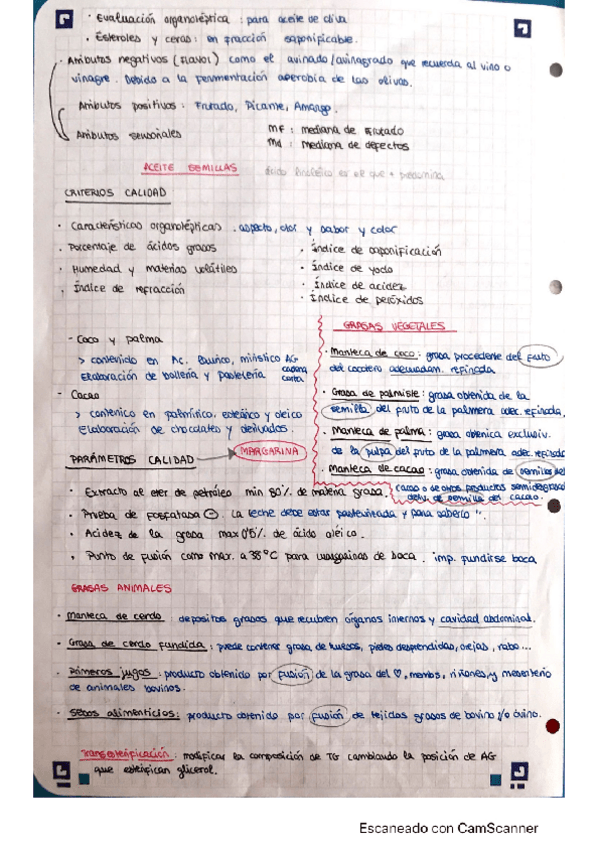 · Evaluación organoléptica : para aceite de oliva
· Esteroles y ceras : en fracción saponificable.
· Atributos negativos (flavor) como el avinado/avinagrado que recuerda al vino o
vinagre. Debido a la fermentación aerobia de las olivas.
Atributos positivos : Frutado, Picante, Amargo.
Atributos sensoriales
Mf : mediana de frutado
Md : Mediana de defectos
ACEITE SEMILLAS
ácido linoleico es el que + predomina
CRITERIOS CALIDAD
· Características organolépticas . aspecto, olor y sabor y color
· Porcentaje de ácidos grasos
· Humedad y materias volátiles
· Índice de refracción
· Índice de saponificación
· Índice de yodo
· Índice de acidez
· Índice de peróxidos
- Coco y palma
> contenido en Ac. láurico, mirístico AG cadena corta
Elaboración de bollería y pastelería
- Cacao
> contenido en palmítico, esteárico y oleico
Elaboración de chocolates y derivados.
GRASAS VEGETALES
· Manteca de coco : grasa procedente del fruto
del cocotero adecuadam. refinada
· Grasa de palmiste : grasa obtenida de la
semilla del fruto de la palmera adec. refinada.
· Manteca de palma : grasa obtenida exclusiv.
de la pulpa del fruto de la palmera adec. refinada
· Manteca de cacao : grasa obtenida de semillas del
cacao o de otros productos semidesgrasados
de semilla del cacao.
PARÁMETROS CALIDAD → MARGARINA
· Extracto al eter de petróleo min 80% de materia grasa.
· Prueba de fosfatasa ⊖. La leche debe estar pasteurizada y para saberlo ".
· Acidez de la grasa max 0'5% de ácido oléico.
· Punto de fusión como max. a 38ºC para margarinas de boca. imp. fundirse boca
GRASAS ANIMALES
· Manteca de cerdo depositos grasos que recubren órganos internos y cavidad abdominal.
· Grasa de cerdo fundida : puede contener grasa de huesos, pieles desprendidas, orejas, rabo...
· Primeros jugos : producto obtenido por fusión de la grasa del ♡, membs, riñones, y mesenterio
de animales bovinos.
· Sebos alimenticios : producto obtenido por fusión de tejidos grasos de bovino y/o ovino.
Transesterificación : modificar la composición de TG cambiando la posición de AG
que esterifican glicerol.
Escaneado con CamScanner